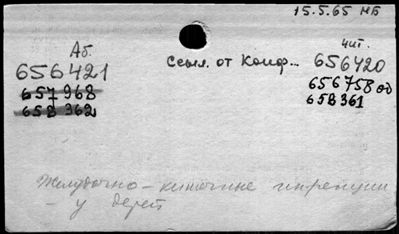 15.5.65 МБ
Аб. Ссыл. от Конф... чит.
656421 656420
657968 656758 об
658362 658361
Желудочно-кишечные инфекции
- у детей